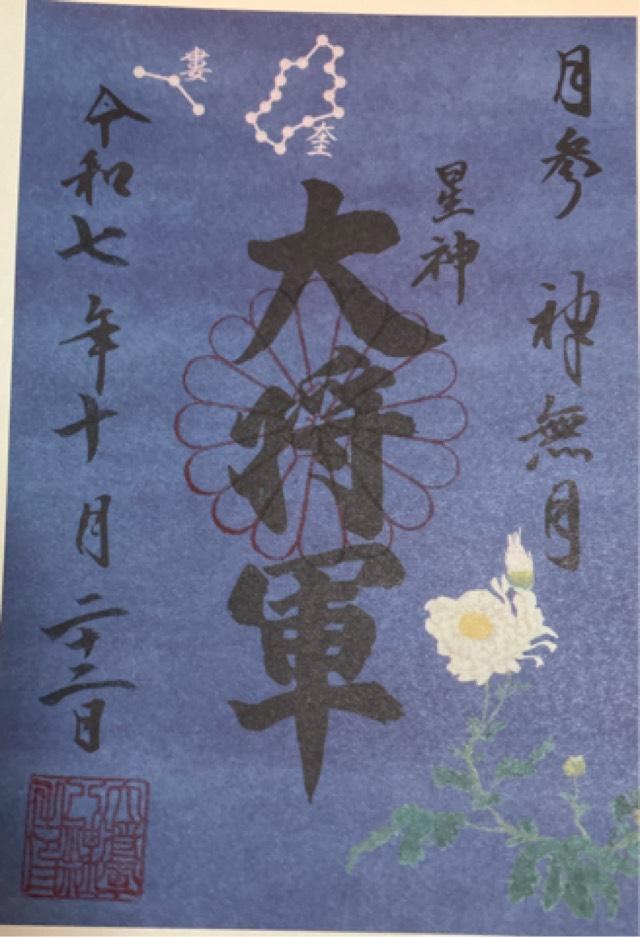 月参 神無月
星神
大将軍
令和七年十月二十二日
奎
婁